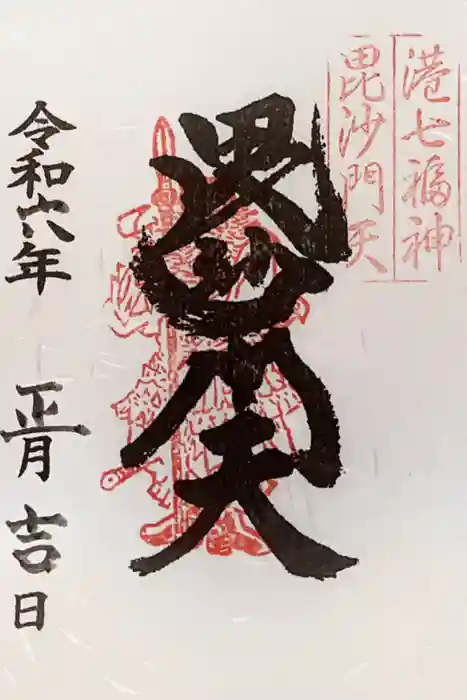 港七福神
毘沙門天
毘沙門天
令和六年 正月吉日